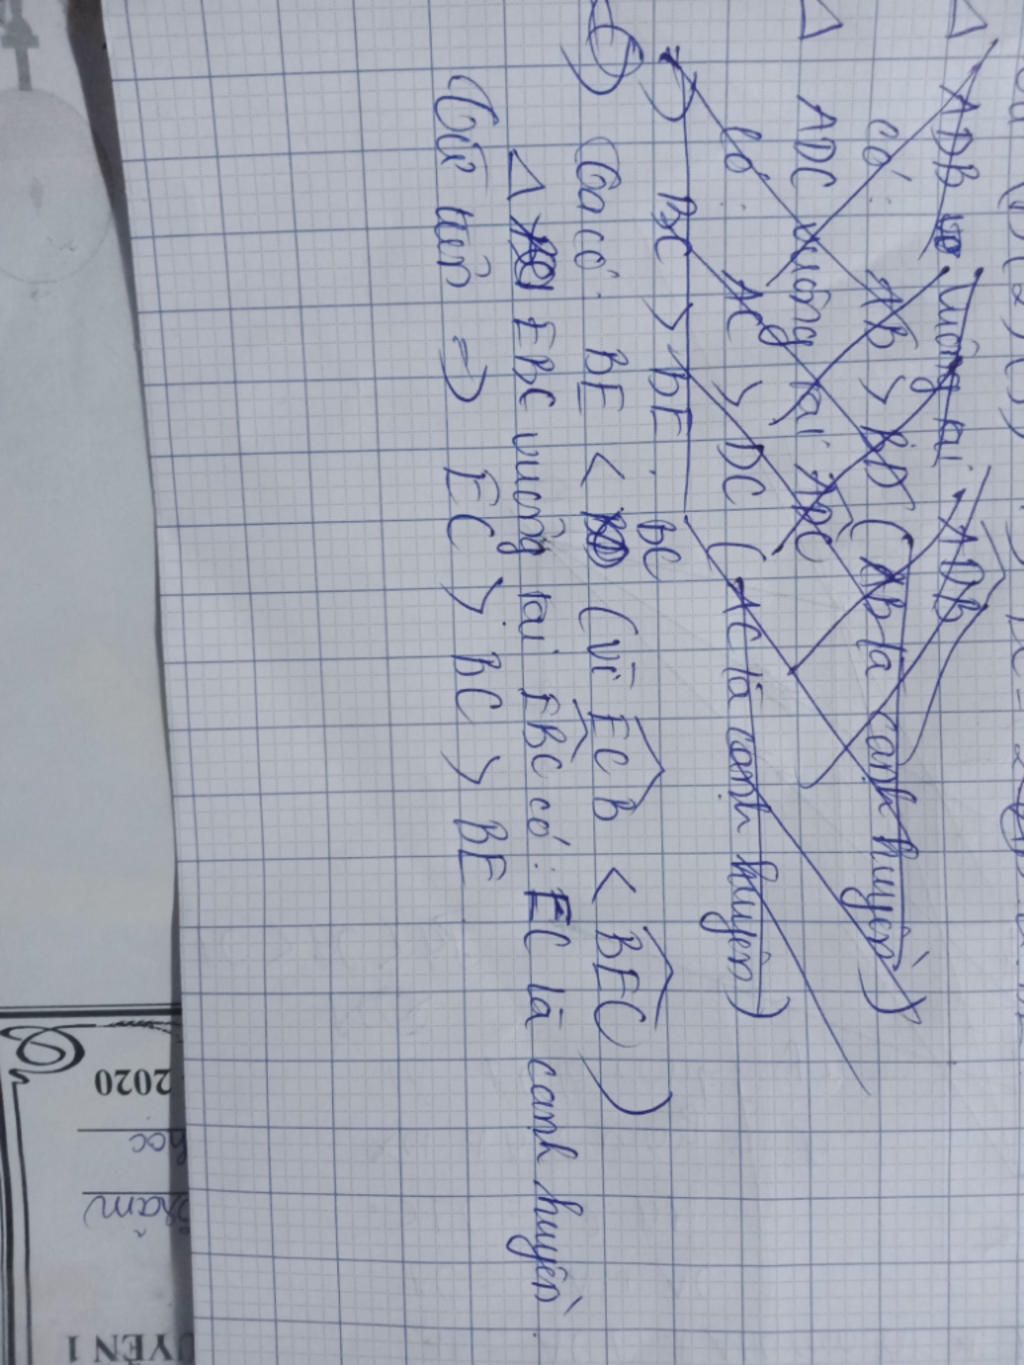 Δ ADB vuông tại ADB
có: AB > BD (AB là cạnh huyền)
Δ ADC vuông tại ADC
có: AC > DC (AC là cạnh huyền)
BC > BE.
BC
Ta có: BE < (vì ECB < BEC)
Δ EBC vuông tại EBC có: EC là cạnh huyền.
⇒ EC > BC > BE
2020
UYỄN 1